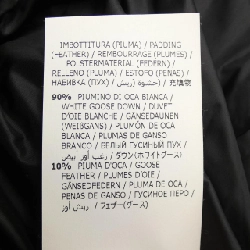 IMBOTTITURA (PIUMA) / PADDING
(FEATHER) / REMBOURRAGE (PLUMES) /
POLSTERMATERIAL (FEDERN) /
RELLENO (PLUMA) / ESTOFO (PENAS) /
НАБИВКА (ПУХ) / حشوة (ريش) / 充填物
90% PIUMINO DI OCA BIANCA /
WHITE GOOSE DOWN / DUVET
D'OIE BLANCHE / GÄNSEDAUNEN
(WEIßGANS) / PLUMÓN DE OCA
BLANCA / PLUMAS DE GANSO
BRANCO / БЕЛЫЙ ГУСИНЫЙ ПУХ /
زغب أوز أبيض / ダウン(ホワイトグース)
10% PIUMA D'OCA / GOOSE
FEATHER / PLUMES D'OIE /
GÄNSEFEDERN / PLUMA DE OCA /
PENAS DE GANSO / ГУСИНОЕ ПЕРО /
ريش أوز / フェザー(グース)